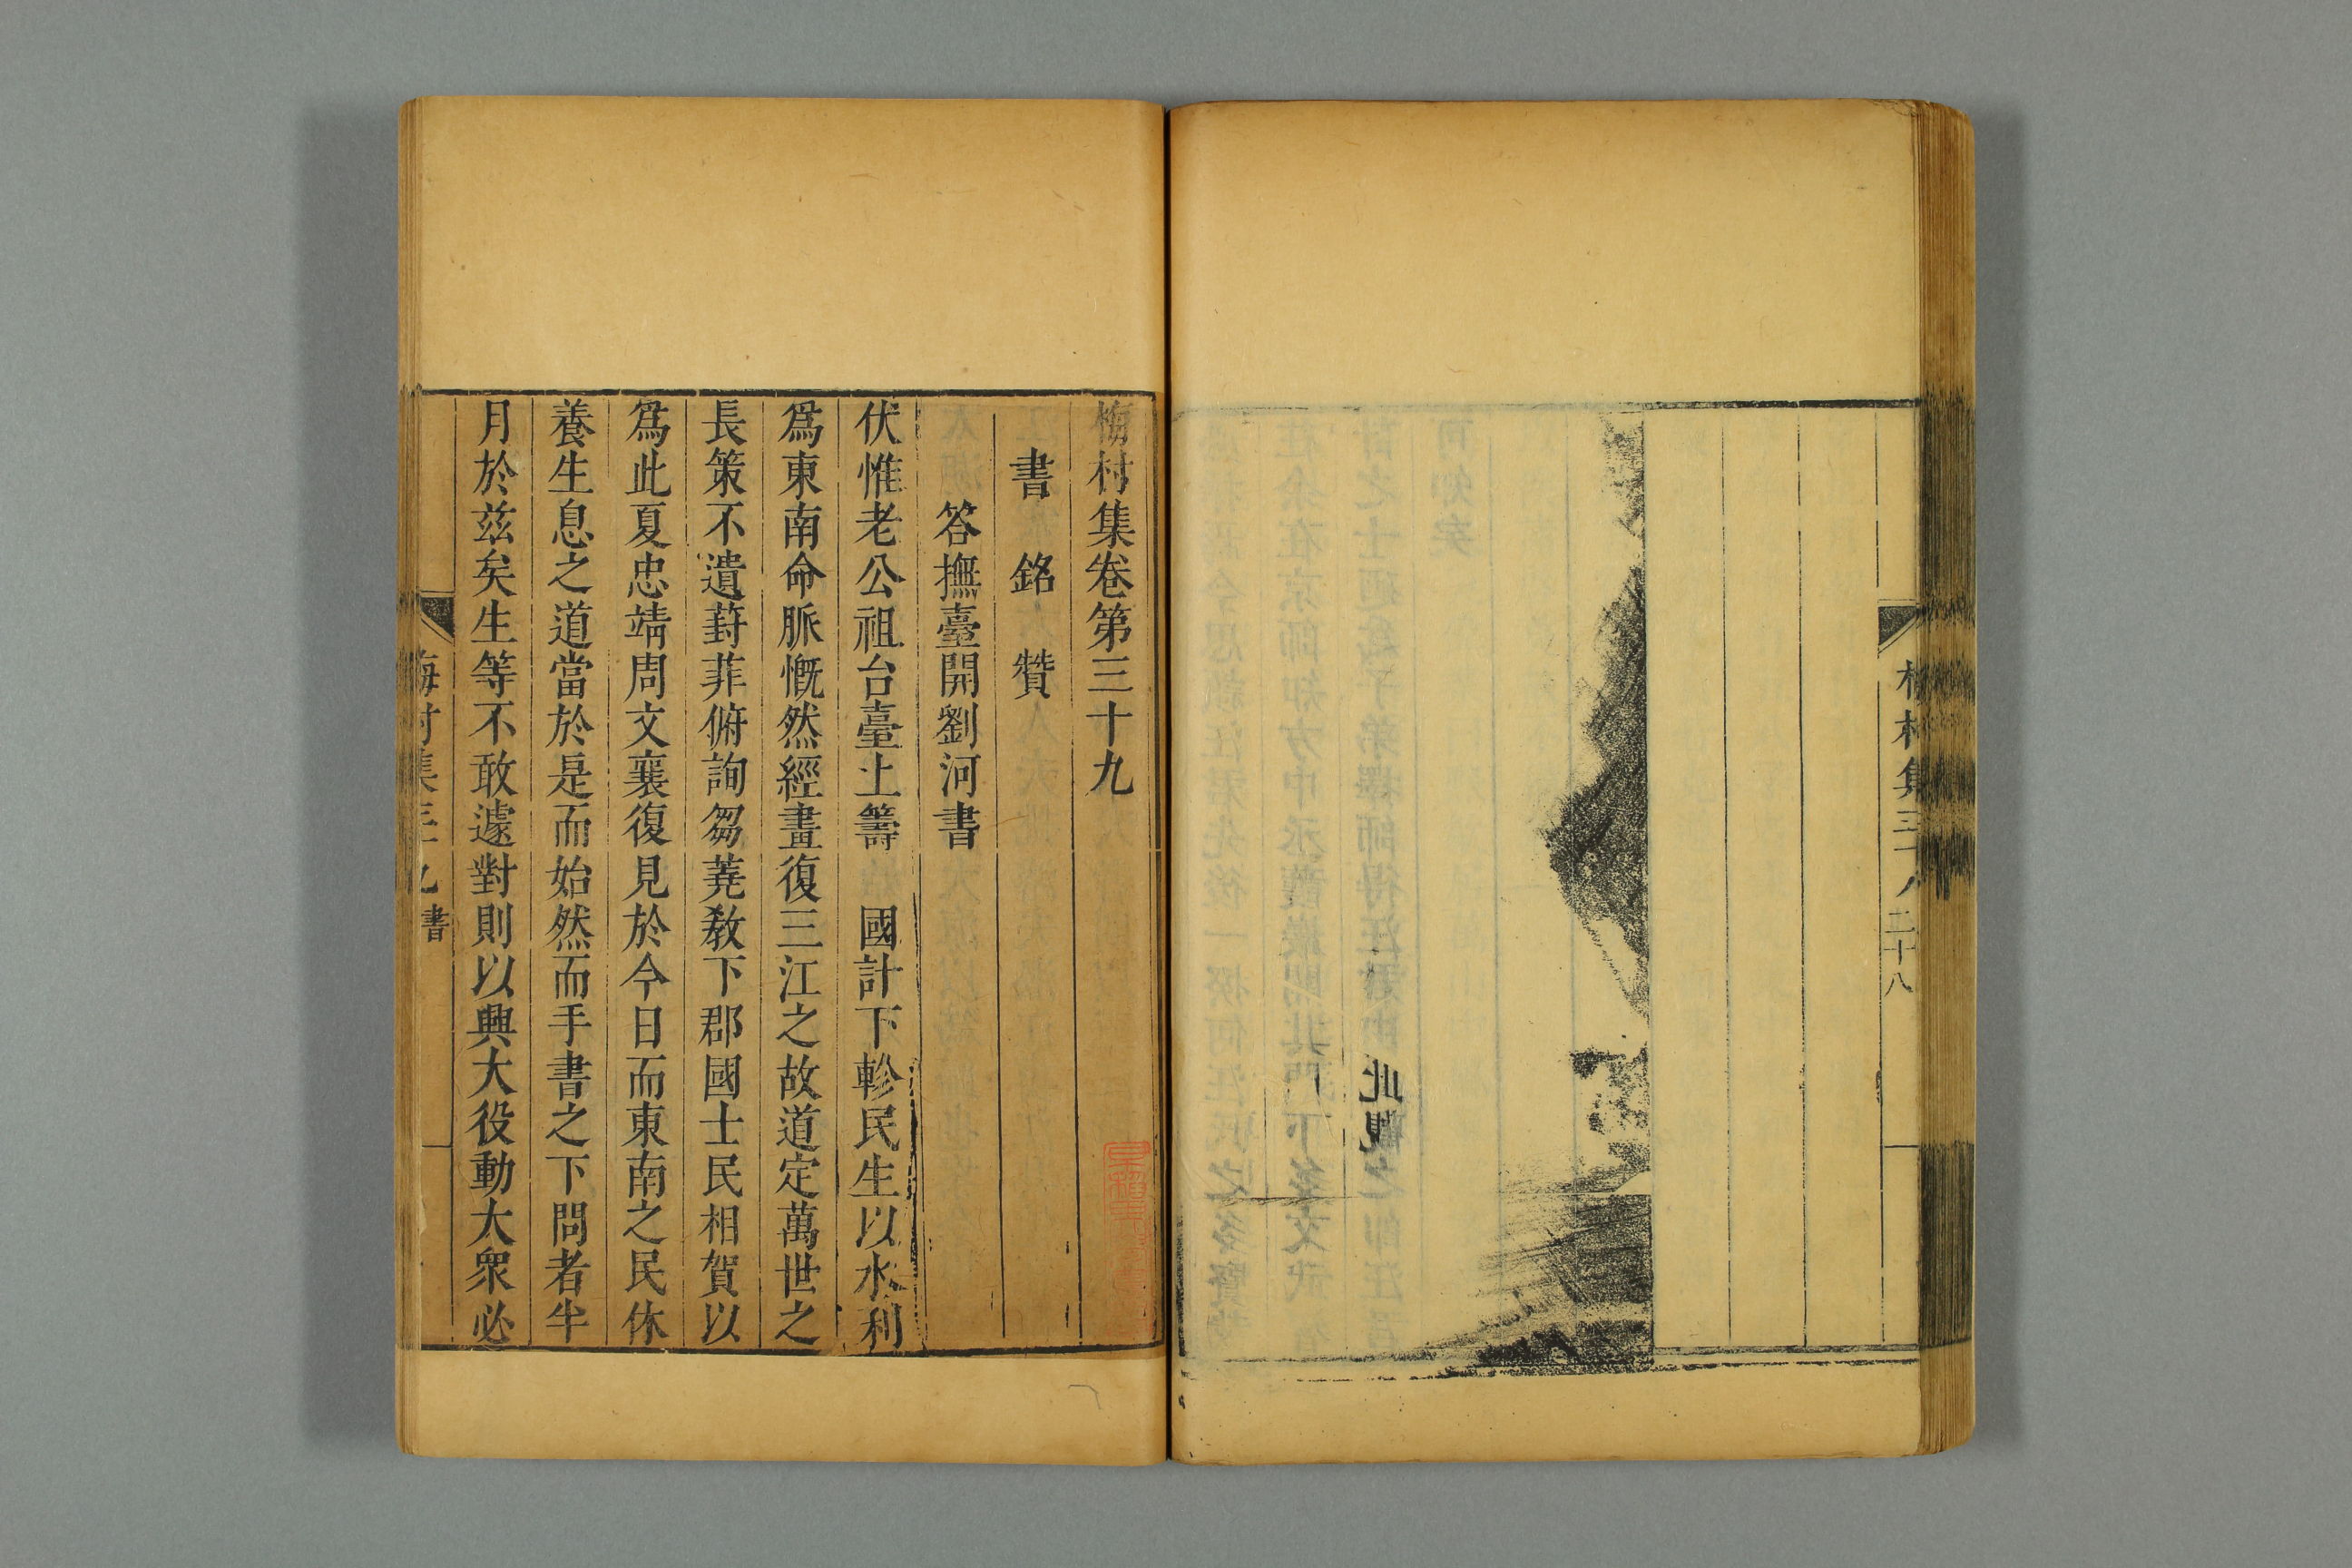 梅村集卷第三十九
書　銘　贊
答撫臺開劉河書
伏惟老公祖台臺上籌　國計下軫民生以水利
爲東南命脈慨然經畫復三江之故道定萬世之
長策不遺葑菲俯詢芻蕘敎下郡國士民相賀以
爲此夏忠靖周文襄復見於今日而東南之民休
養生息之道當於是而始然而手書之下問者半
月於兹矣生等不敢遽對則以興大役動大衆必
梅村集三十九　書
村集三十八　三十八